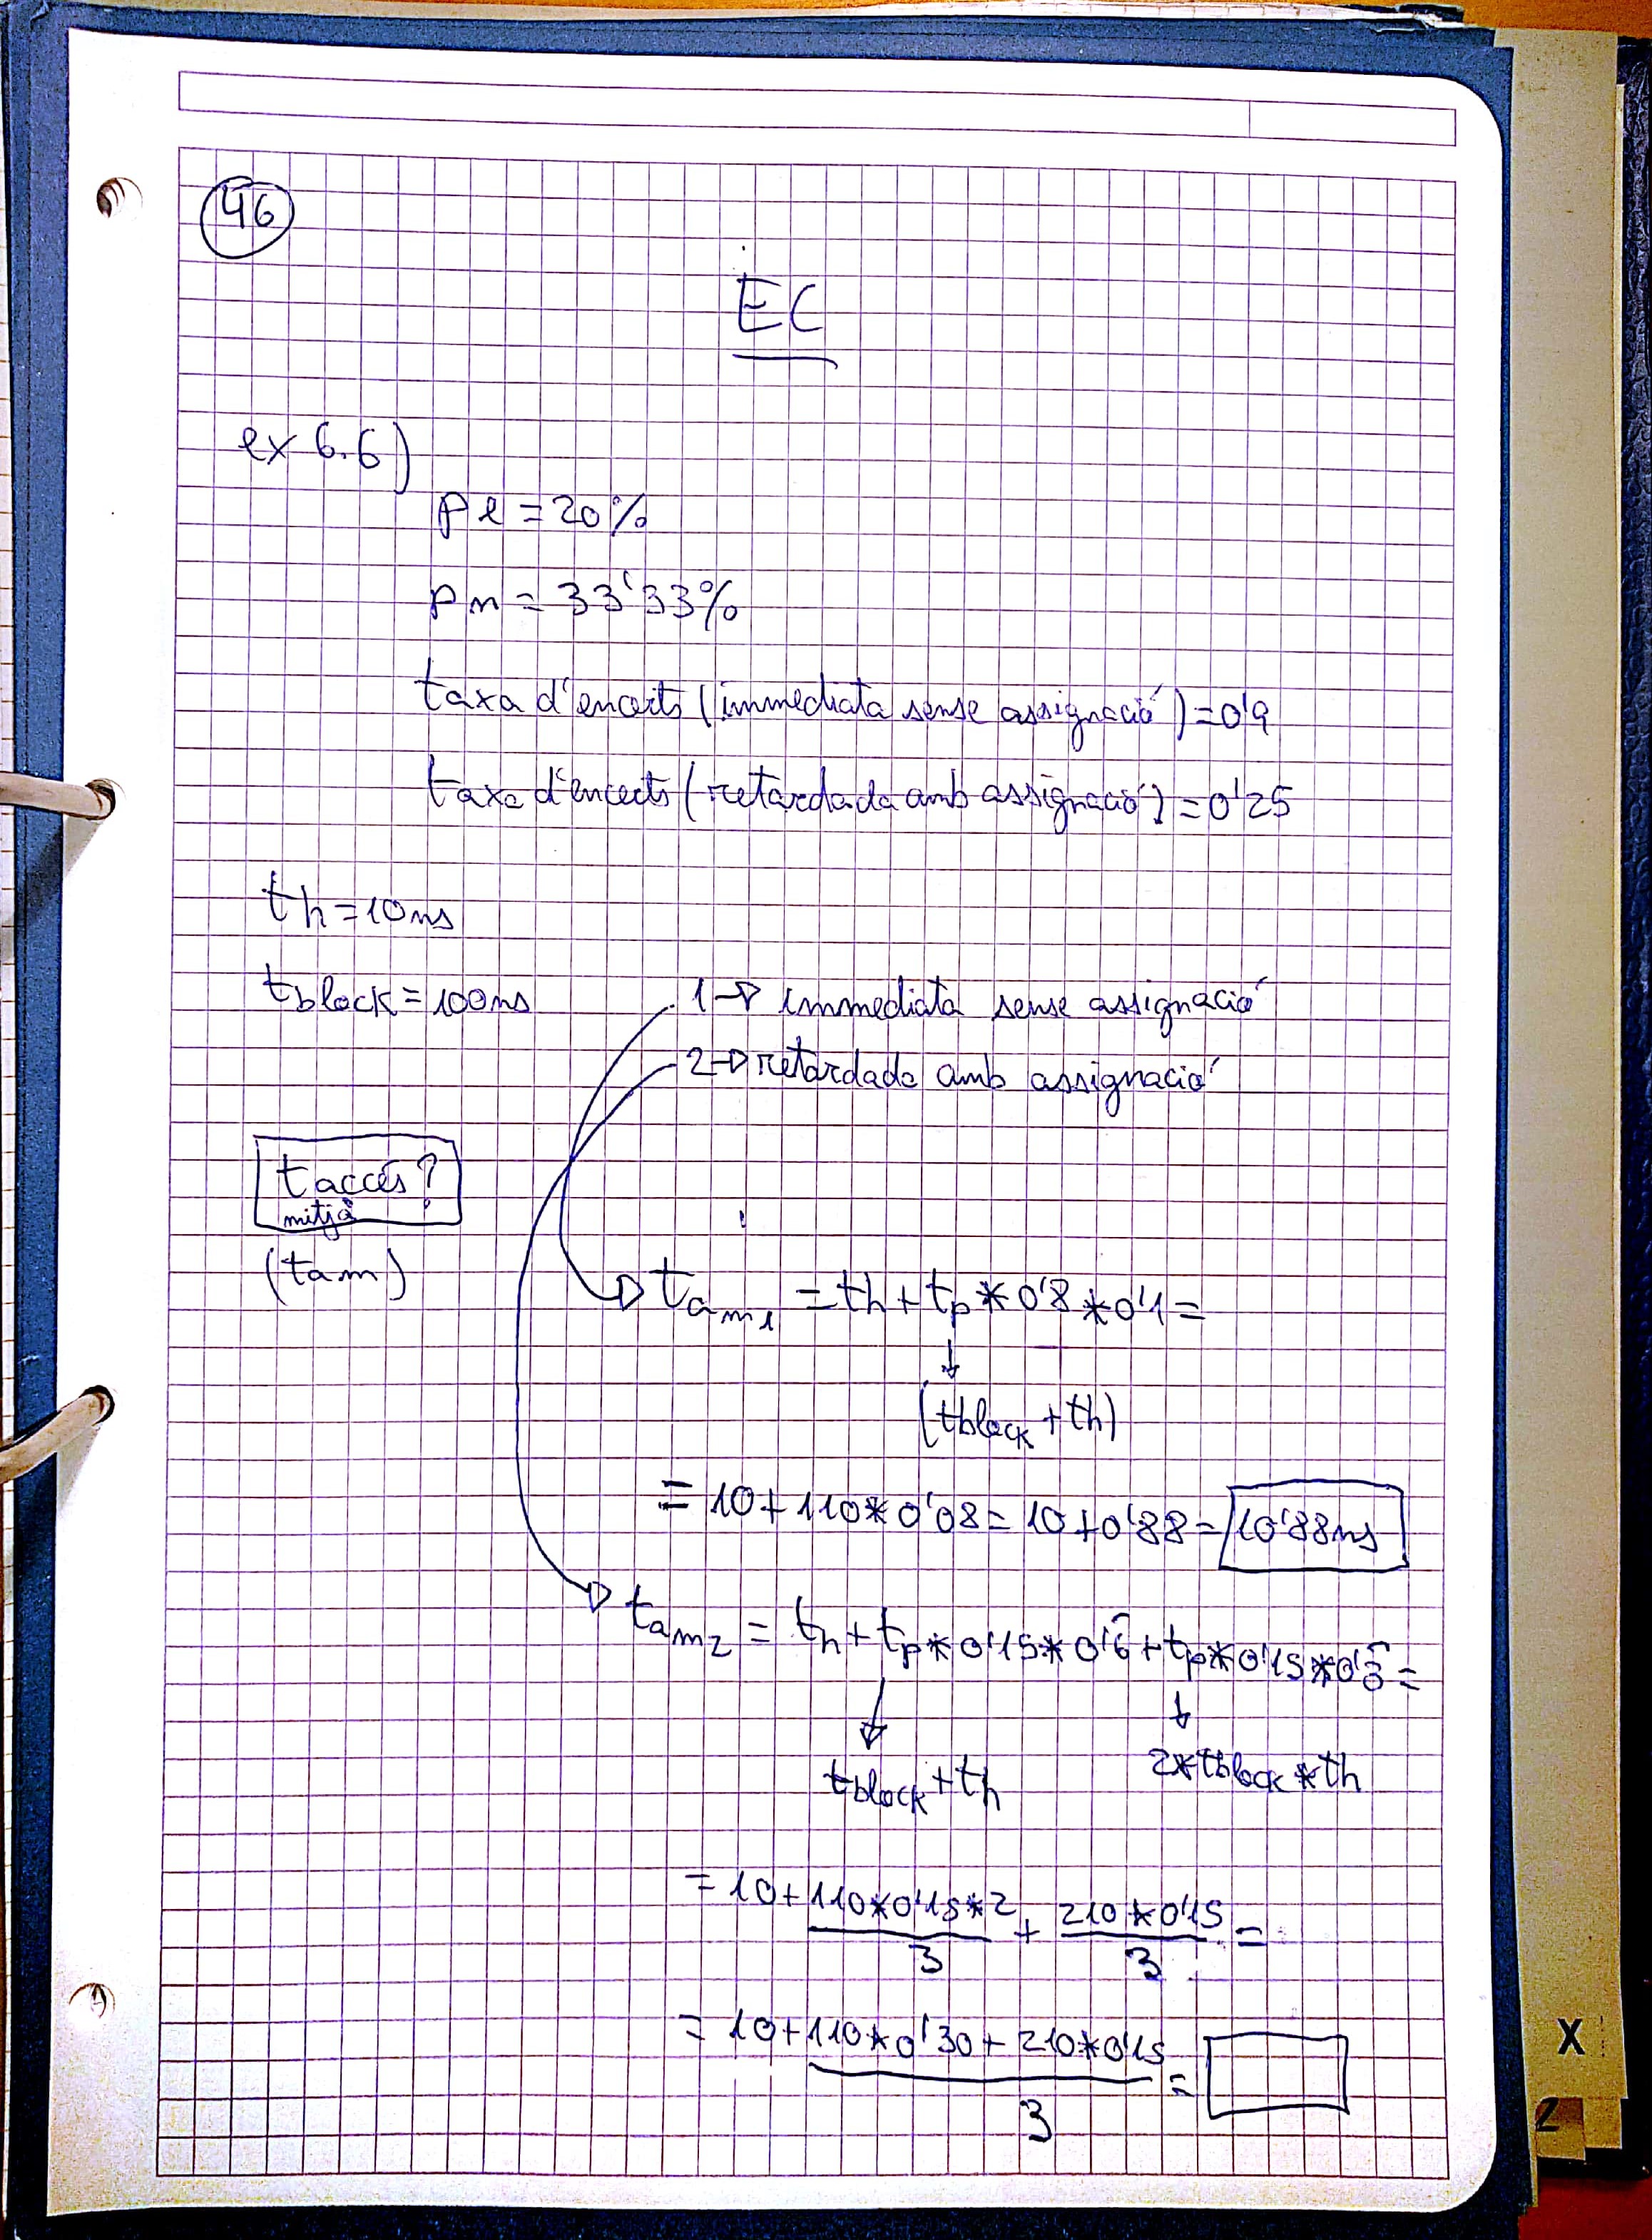 46
EC
ex 6.6)
pe = 20%
pm = 33'33%
taxa d'encerts (immediata sense assignació) = 0'9
taxa d'encerts (retardada amb assignació) = 0'25
th = 10ns
tblock = 100ns
1→ immediata sense assignació
2→ retardada amb assignació
taccés?
mitjà
(tam)
tam1 = th + tp * 0'8 * 0'1 =
(tblock + th)
= 10 + 110 * 0'08 = 10 + 0'88 = 10'88ns
tam2 = th + tp * 0'15 * 0'6̂ + tp * 0'15 * 0'3̂ =
tblock + th
2*tblock*th
= 10 + 110*0'15*2/3 + 210*0'15/3 =
= 10 + (110*0'30 + 210*0'15)/3 =
X
2